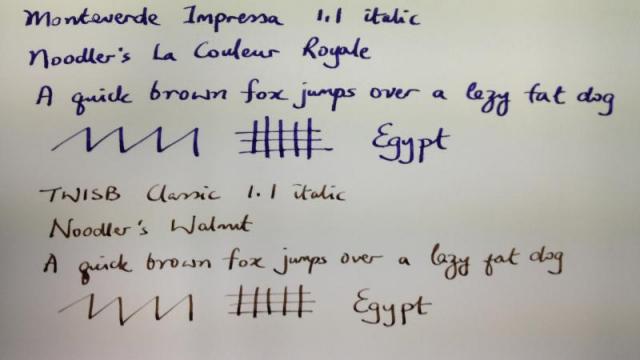 Monteverde Impressa 1.1 italic
Noodler's La Couleur Royale
A quick brown fox jumps over a lazy fat dog
Egypt
TWISB Classic 1.1 italic
Noodler's Walnut
A quick brown fox jumps over a lazy fat dog
Egypt